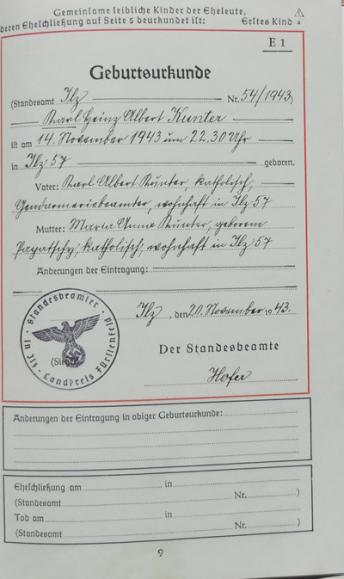 Gemeinsame leibliche Kinder der Eheleute,
deren Eheschließung auf Seite 5 beurkundet ist: Erstes Kind
E 1
Geburtsurkunde
(Standesamt Ilz Nr. 54/1943)
Karl Heinz Albert Kunter
ist am 14. November 1943 um 22.30 Uhr
in Ilz 57 geboren.
Vater: Karl Albert Kunter, katholisch,
Gendarmeriebeamter, wohnhaft in Ilz 57
Mutter: Maria Anna Kunter, geborene
katholisch, wohnhaft in Ilz 57
Änderungen der Eintragung:
Ilz, den 20. November 1943.
Standesbeamter
in Ilz
Landkreis Fürstenfeld
(Siegel)
Der Standesbeamte
Hofer
Änderungen der Eintragung in obiger Geburtsurkunde:
Eheschließung am in
(Standesamt Nr. )
Tod am in
(Standesamt Nr. )
9